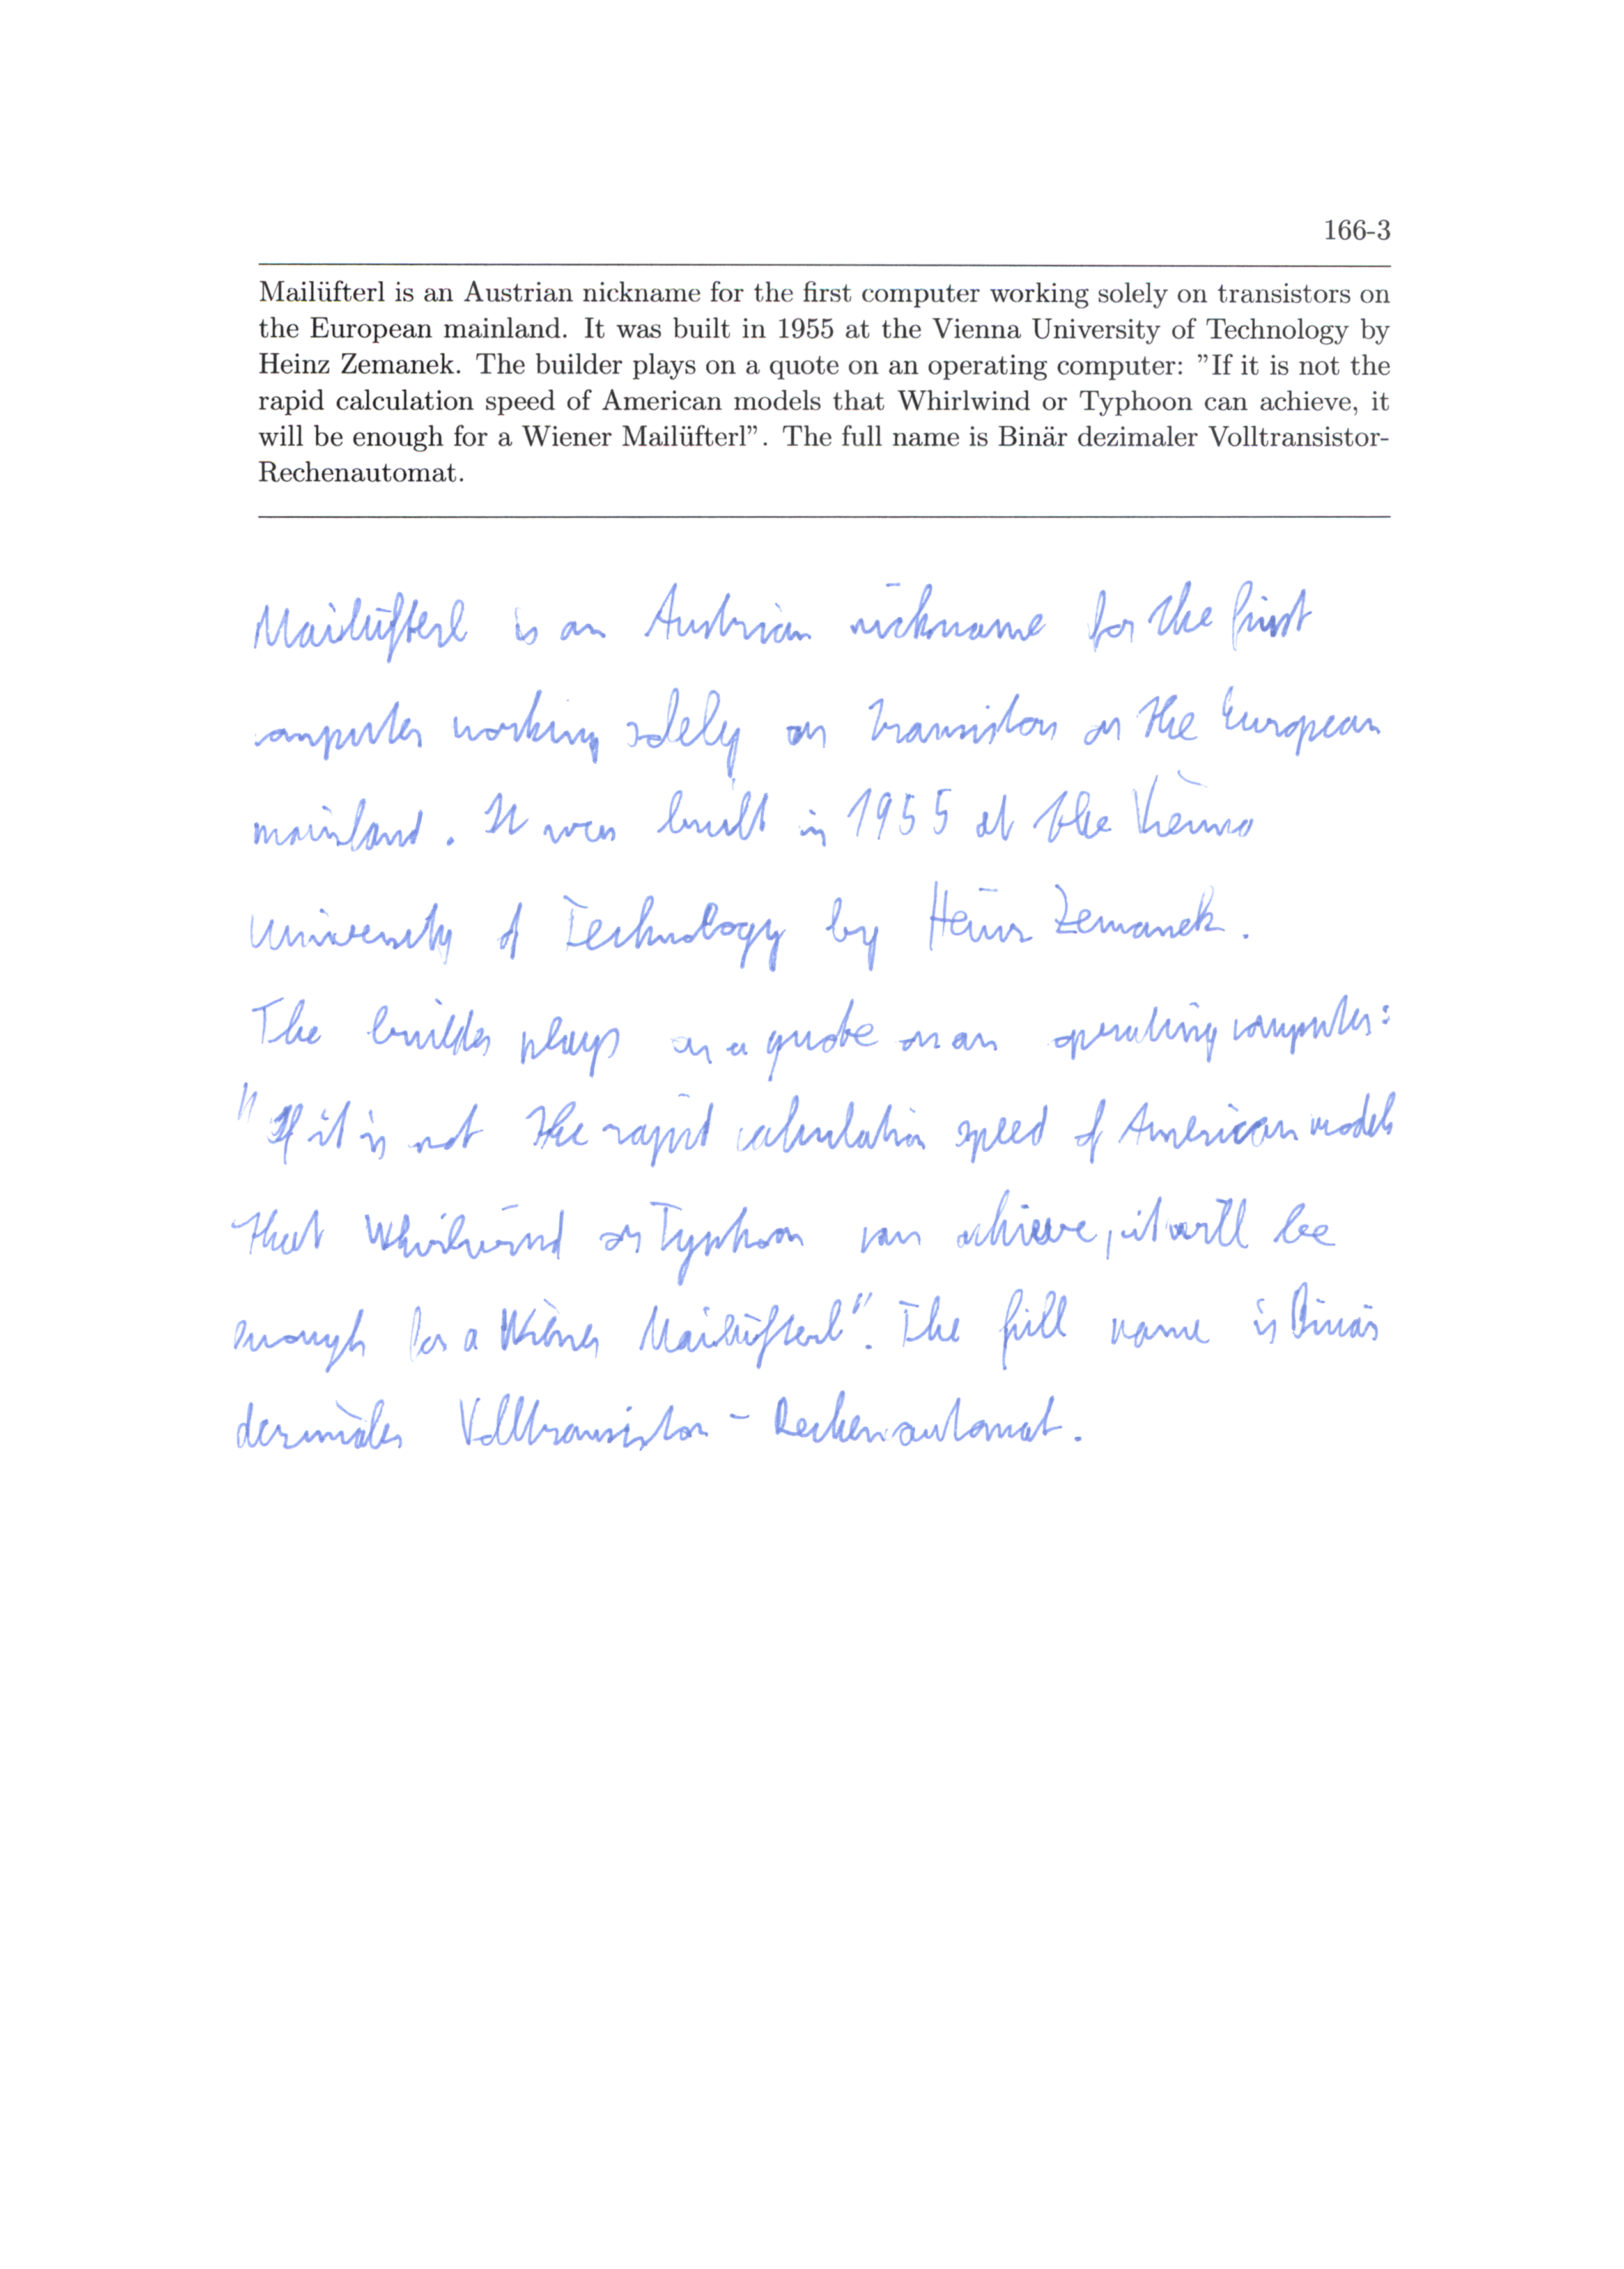 166-3
Mailüfterl is an Austrian nickname for the first computer working solely on transistors on
the European mainland. It was built in 1955 at the Vienna University of Technology by
Heinz Zemanek. The builder plays on a quote on an operating computer: ”If it is not the
rapid calculation speed of American models that Whirlwind or Typhoon can achieve, it
will be enough for a Wiener Mailüfterl”. The full name is Binär dezimaler Volltransistor-
Rechenautomat.
Mailüfterl is an Austrian nickname for the first
computer working solely on transistors on the European
mainland. It was built in 1955 at the Vienna
University of Technology by Heinz Zemanek.
The builder plays on a quote on an operating computer:
"If it is not the rapid calculation speed of American models
that Whirlwind or Typhoon can achieve, it will be
enough for a Wiener Mailüfterl". The full name is Binär
dezimaler Volltransistor - Rechenautomat.